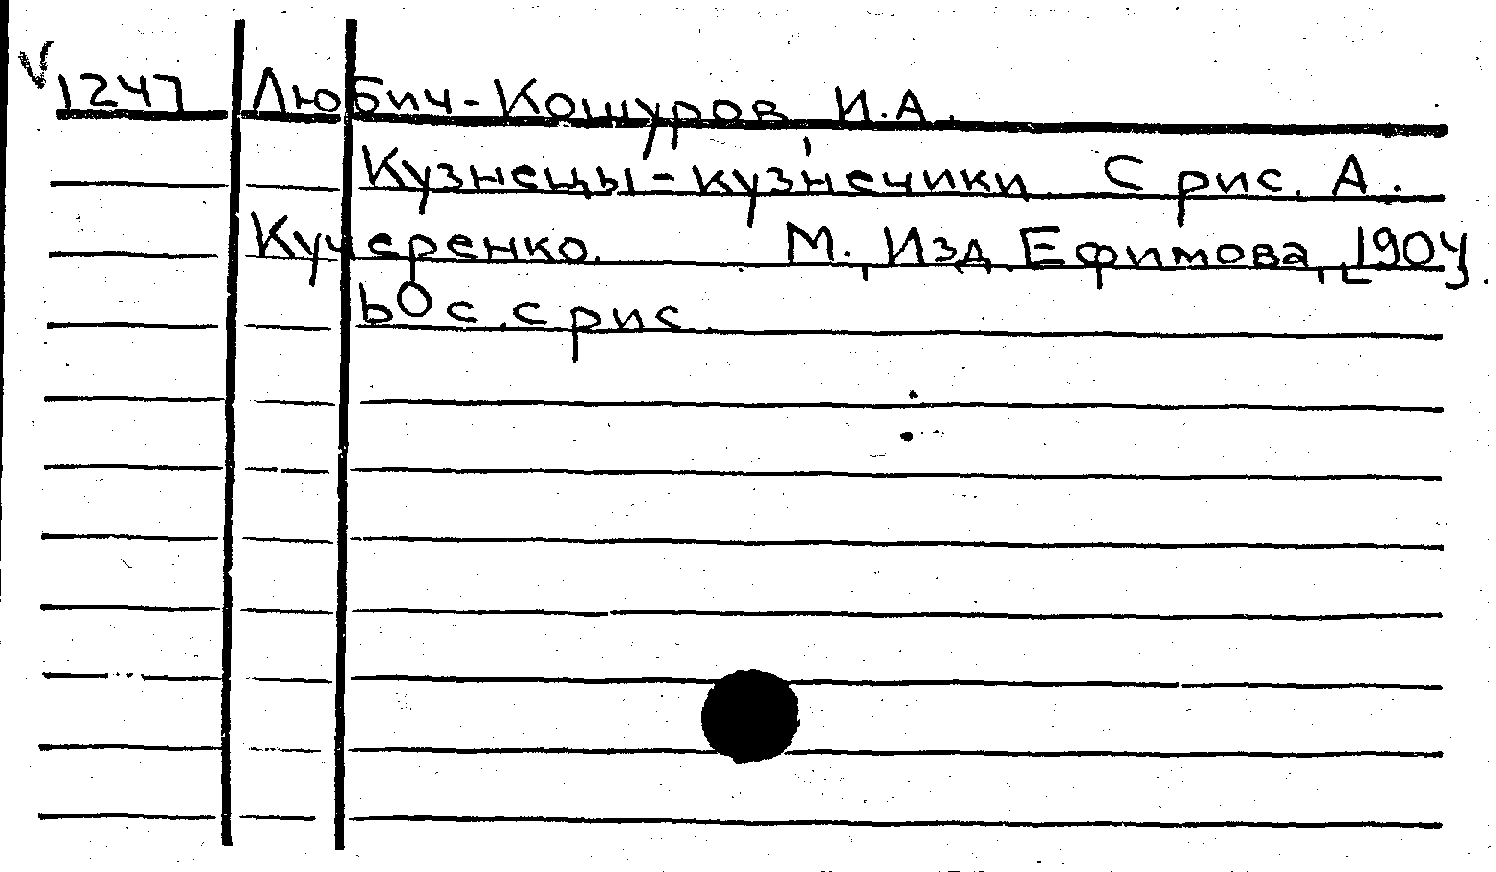 V 1247 Любич-Кошуров, И.А.
Кузнецы-кузнечики С рис. А.
Кучеренко. М., Изд. Ефимова, [1904].
60 с. с рис.